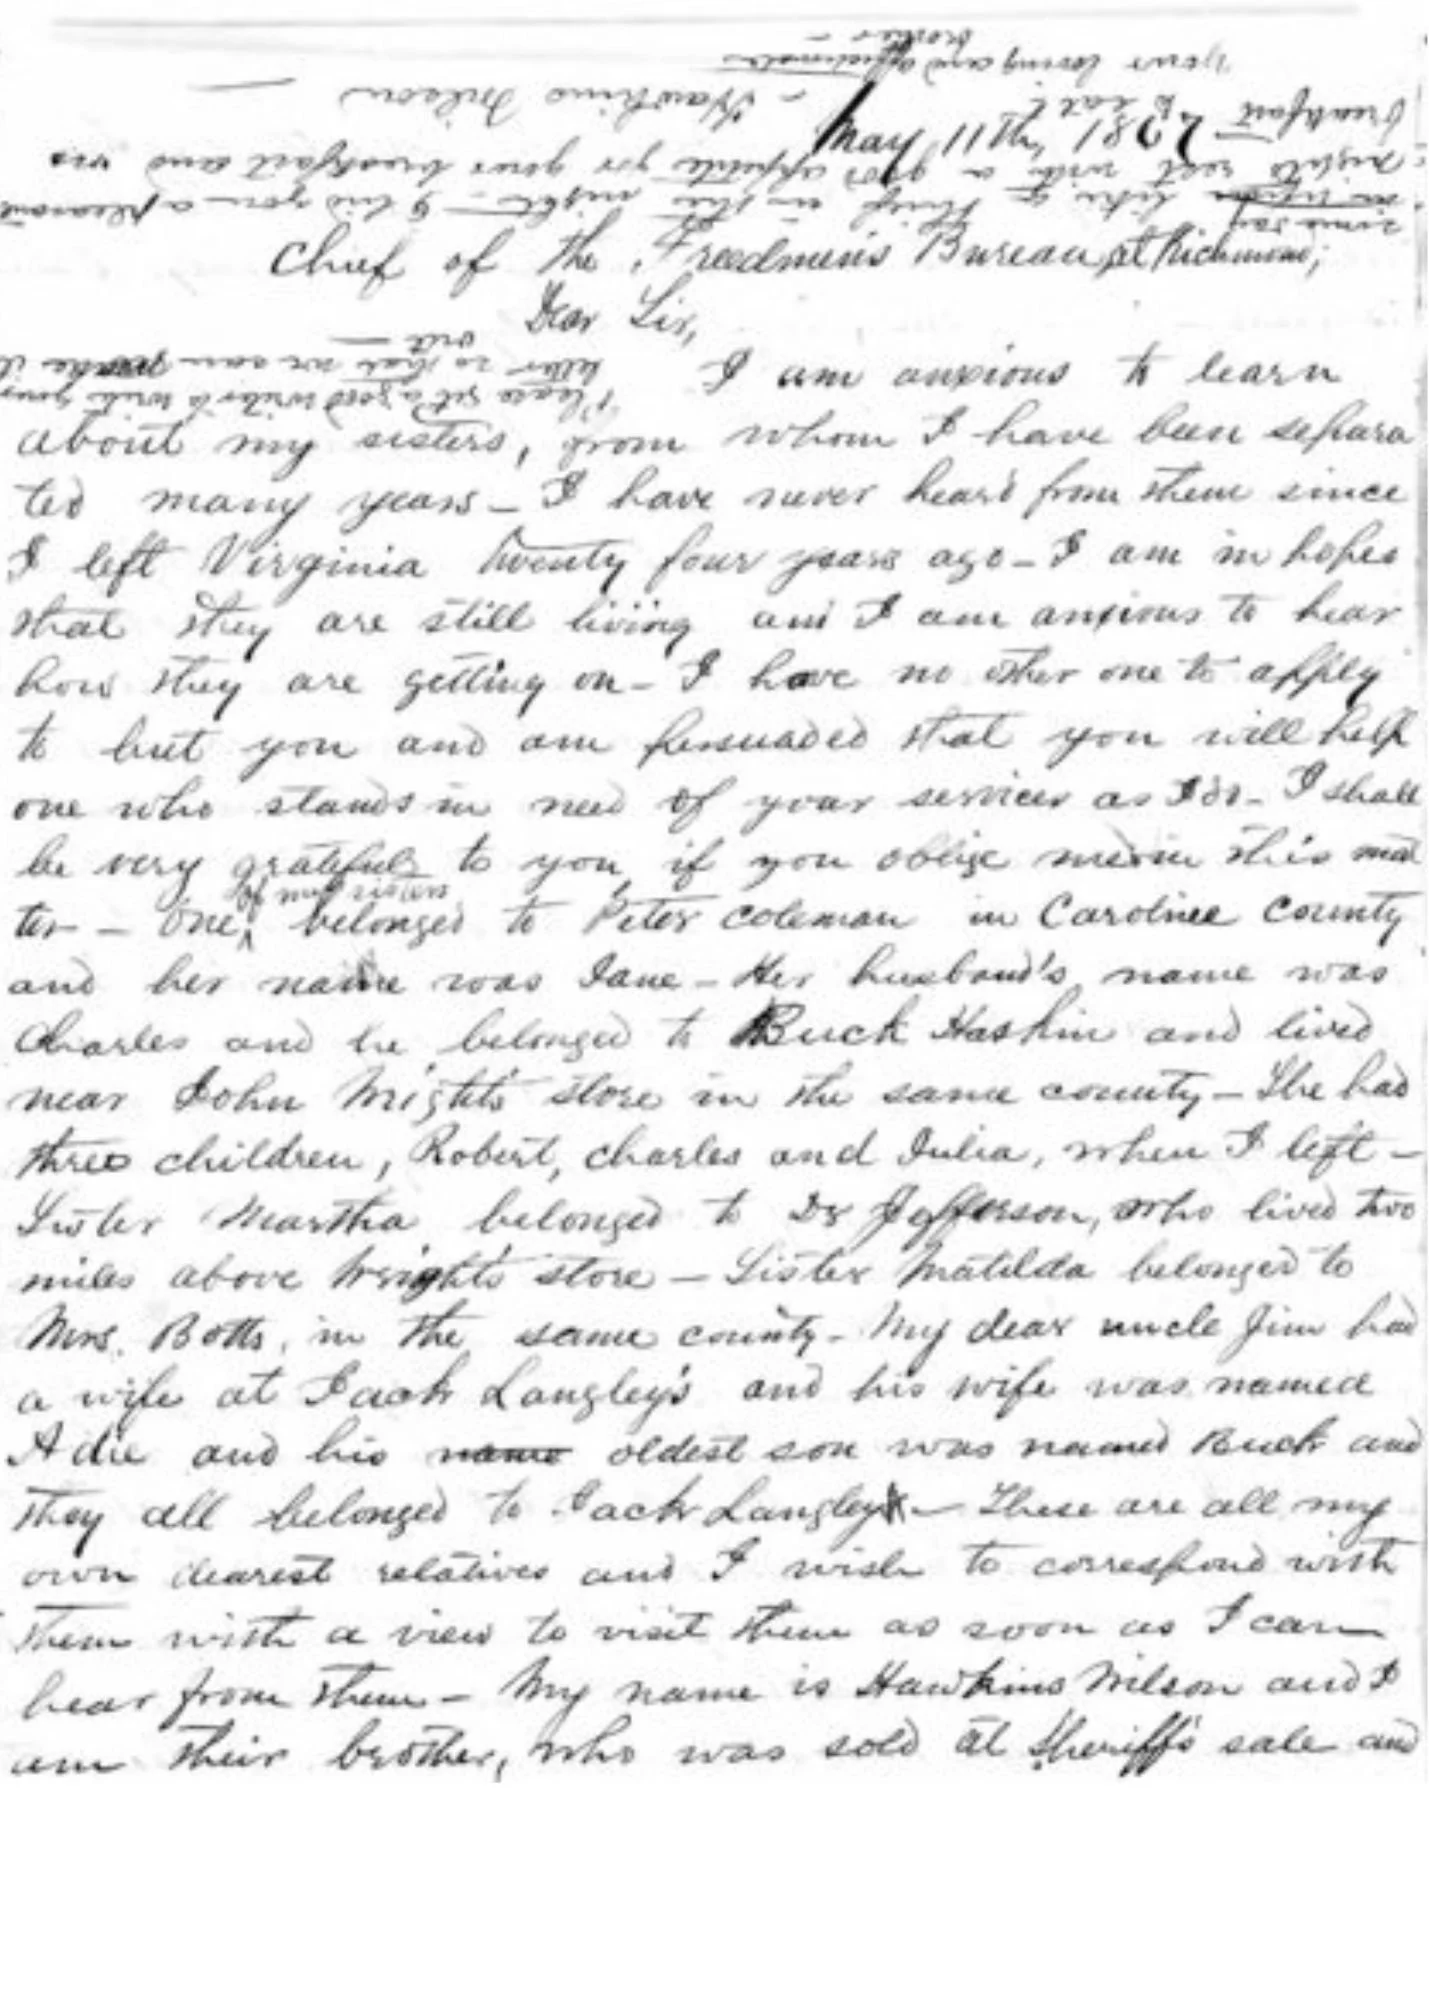 May 11th, 1867
Chief of the Freedmen's Bureau, at Richmond,
Dear Sir,
I am anxious to learn
about my sisters, from whom I have been separa
ted many years – I have never heard from them since
I left Virginia twenty four years ago – I am in hopes
that they are still living and I am anxious to hear
how they are getting on – I have no other one to apply
to but you and am persuaded that you will help
one who stands in need of your services as I do – I shall
be very grateful to you, if you oblige me in this mat
of my sisters
ter – One belonged to Peter Coleman in Caroline County
and her name was Jane – Her husband's name was
Charles and he belonged to Buck Haskin and lived
near John Wright's store in the same county – She had
three children, Robert, Charles and Julia, when I left –
Sister Martha belonged to Dr Jefferson, who lived two
miles above Wright's store – Sister Matilda belonged to
Mrs. Botts, in the same county – My dear uncle Jim had
a wife at Jack Langley's and his wife was named
Adie and his name oldest son was named Buck and
they all belonged to Jack Langley – These are all my
own dearest relatives and I wish to correspond with
them with a view to visit them as soon as I can
hear from them – My name is Hawkins Wilson and I
am their brother, who was sold at Sheriff's sale and
Please get a good writer to write your
letter so that we can make it
out –
like a thief in the night – I bid you a pleasant
night's rest with a good appetite for your breakfast and no
breakfast to eat.
Your loving and affectionate
brother –
– Hawkins Wilson –